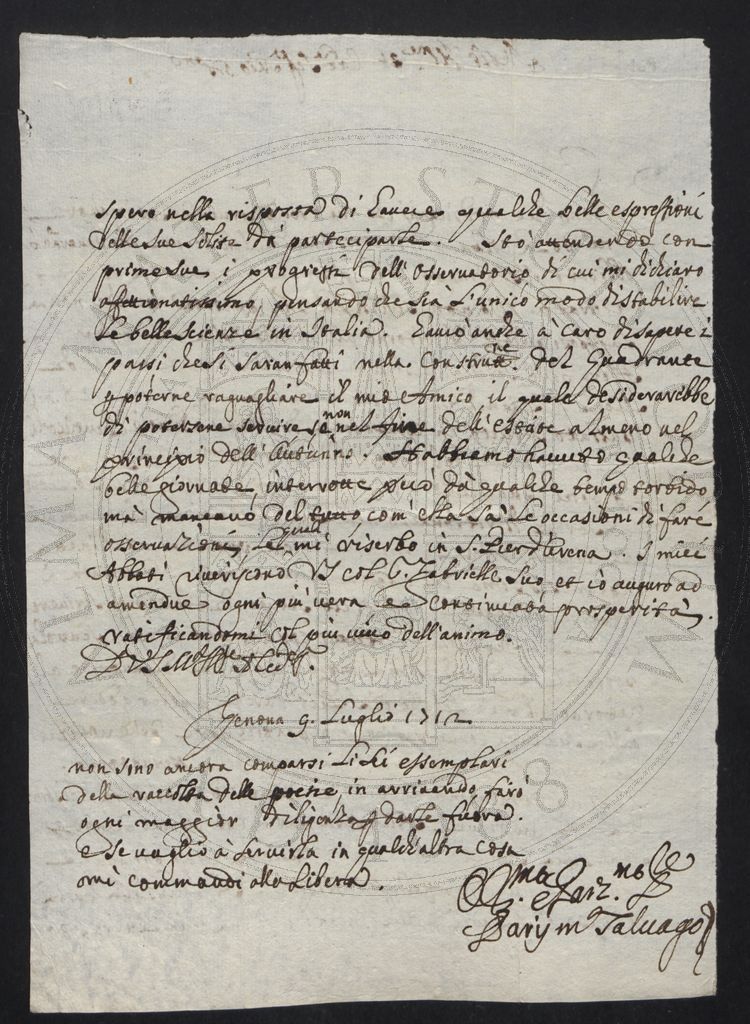 spero nella risposta di havere qualche belle espressioni
delle sue solite da participarle. Stò attendendo con
prime sue i progressi dell'osservatorio di cui mi dichiaro
affettionatissimo, pensando che sia l'unico modo di stabilire
le belle scienze in Italia. Havrò anche à caro di sapere i
passi che si saran fatti nella construtt.ne del Quadrante
p poterne raguagliare il mio Amico il quale desiderarebbe
di potersene servire se non nel fine dell'estate almeno nel
principio dell'Autunno. Habbiamo havuto qualche
belle giornate, interrotte però da qualche tempo torbido
mà mancavo del tutto com'ella sà le occasioni di fare
osservazioni, le quali mi riserbo in S. Pier d'Arena. I miei
Abbati riveriscono VS col S. Gabrielle suo et io auguro ad
amendue ogni più vera e continuata prosperità
ratificandomi col più vivo dell'animo.
D VS
Genova 9. Luglio 1712
non sono ancora comparsi li essemplari
della raccolta delle poesie in arrivando farò
ogni maggior diligenza p darle fuora.
e se vaglio à servirla in qualch'altra cosa
mi commandi alla libera.
Salvago